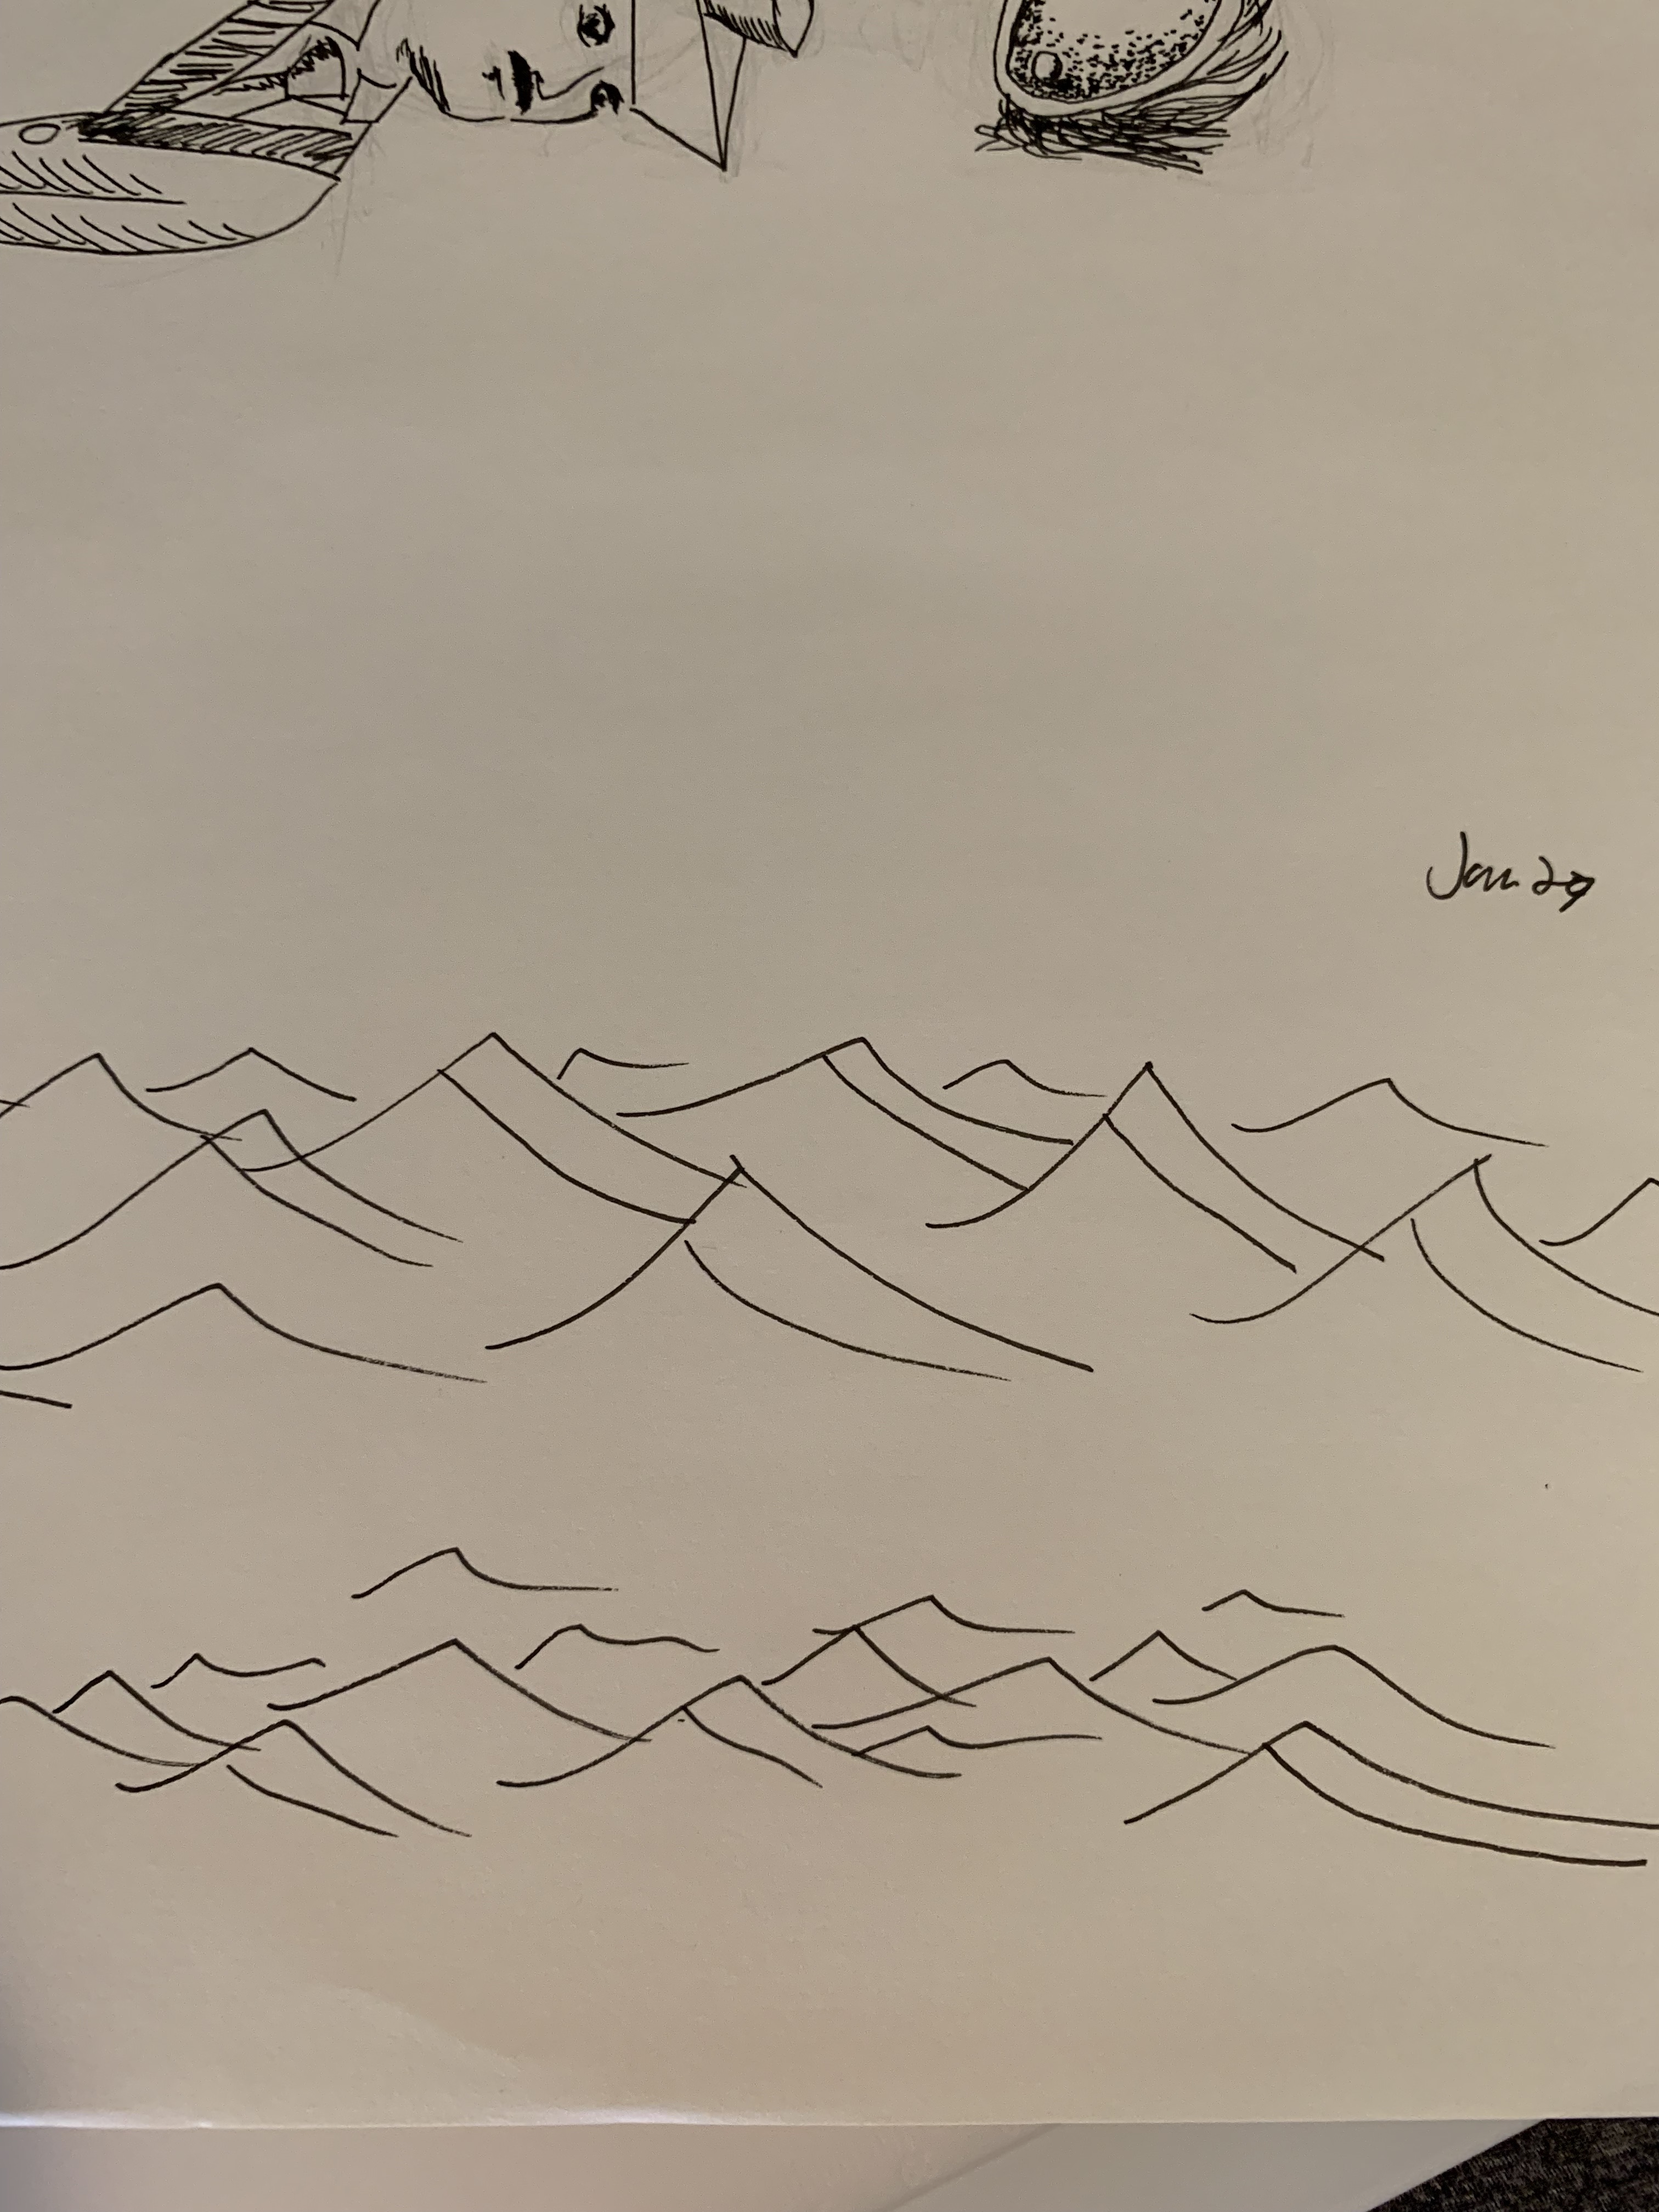 Jan. 29